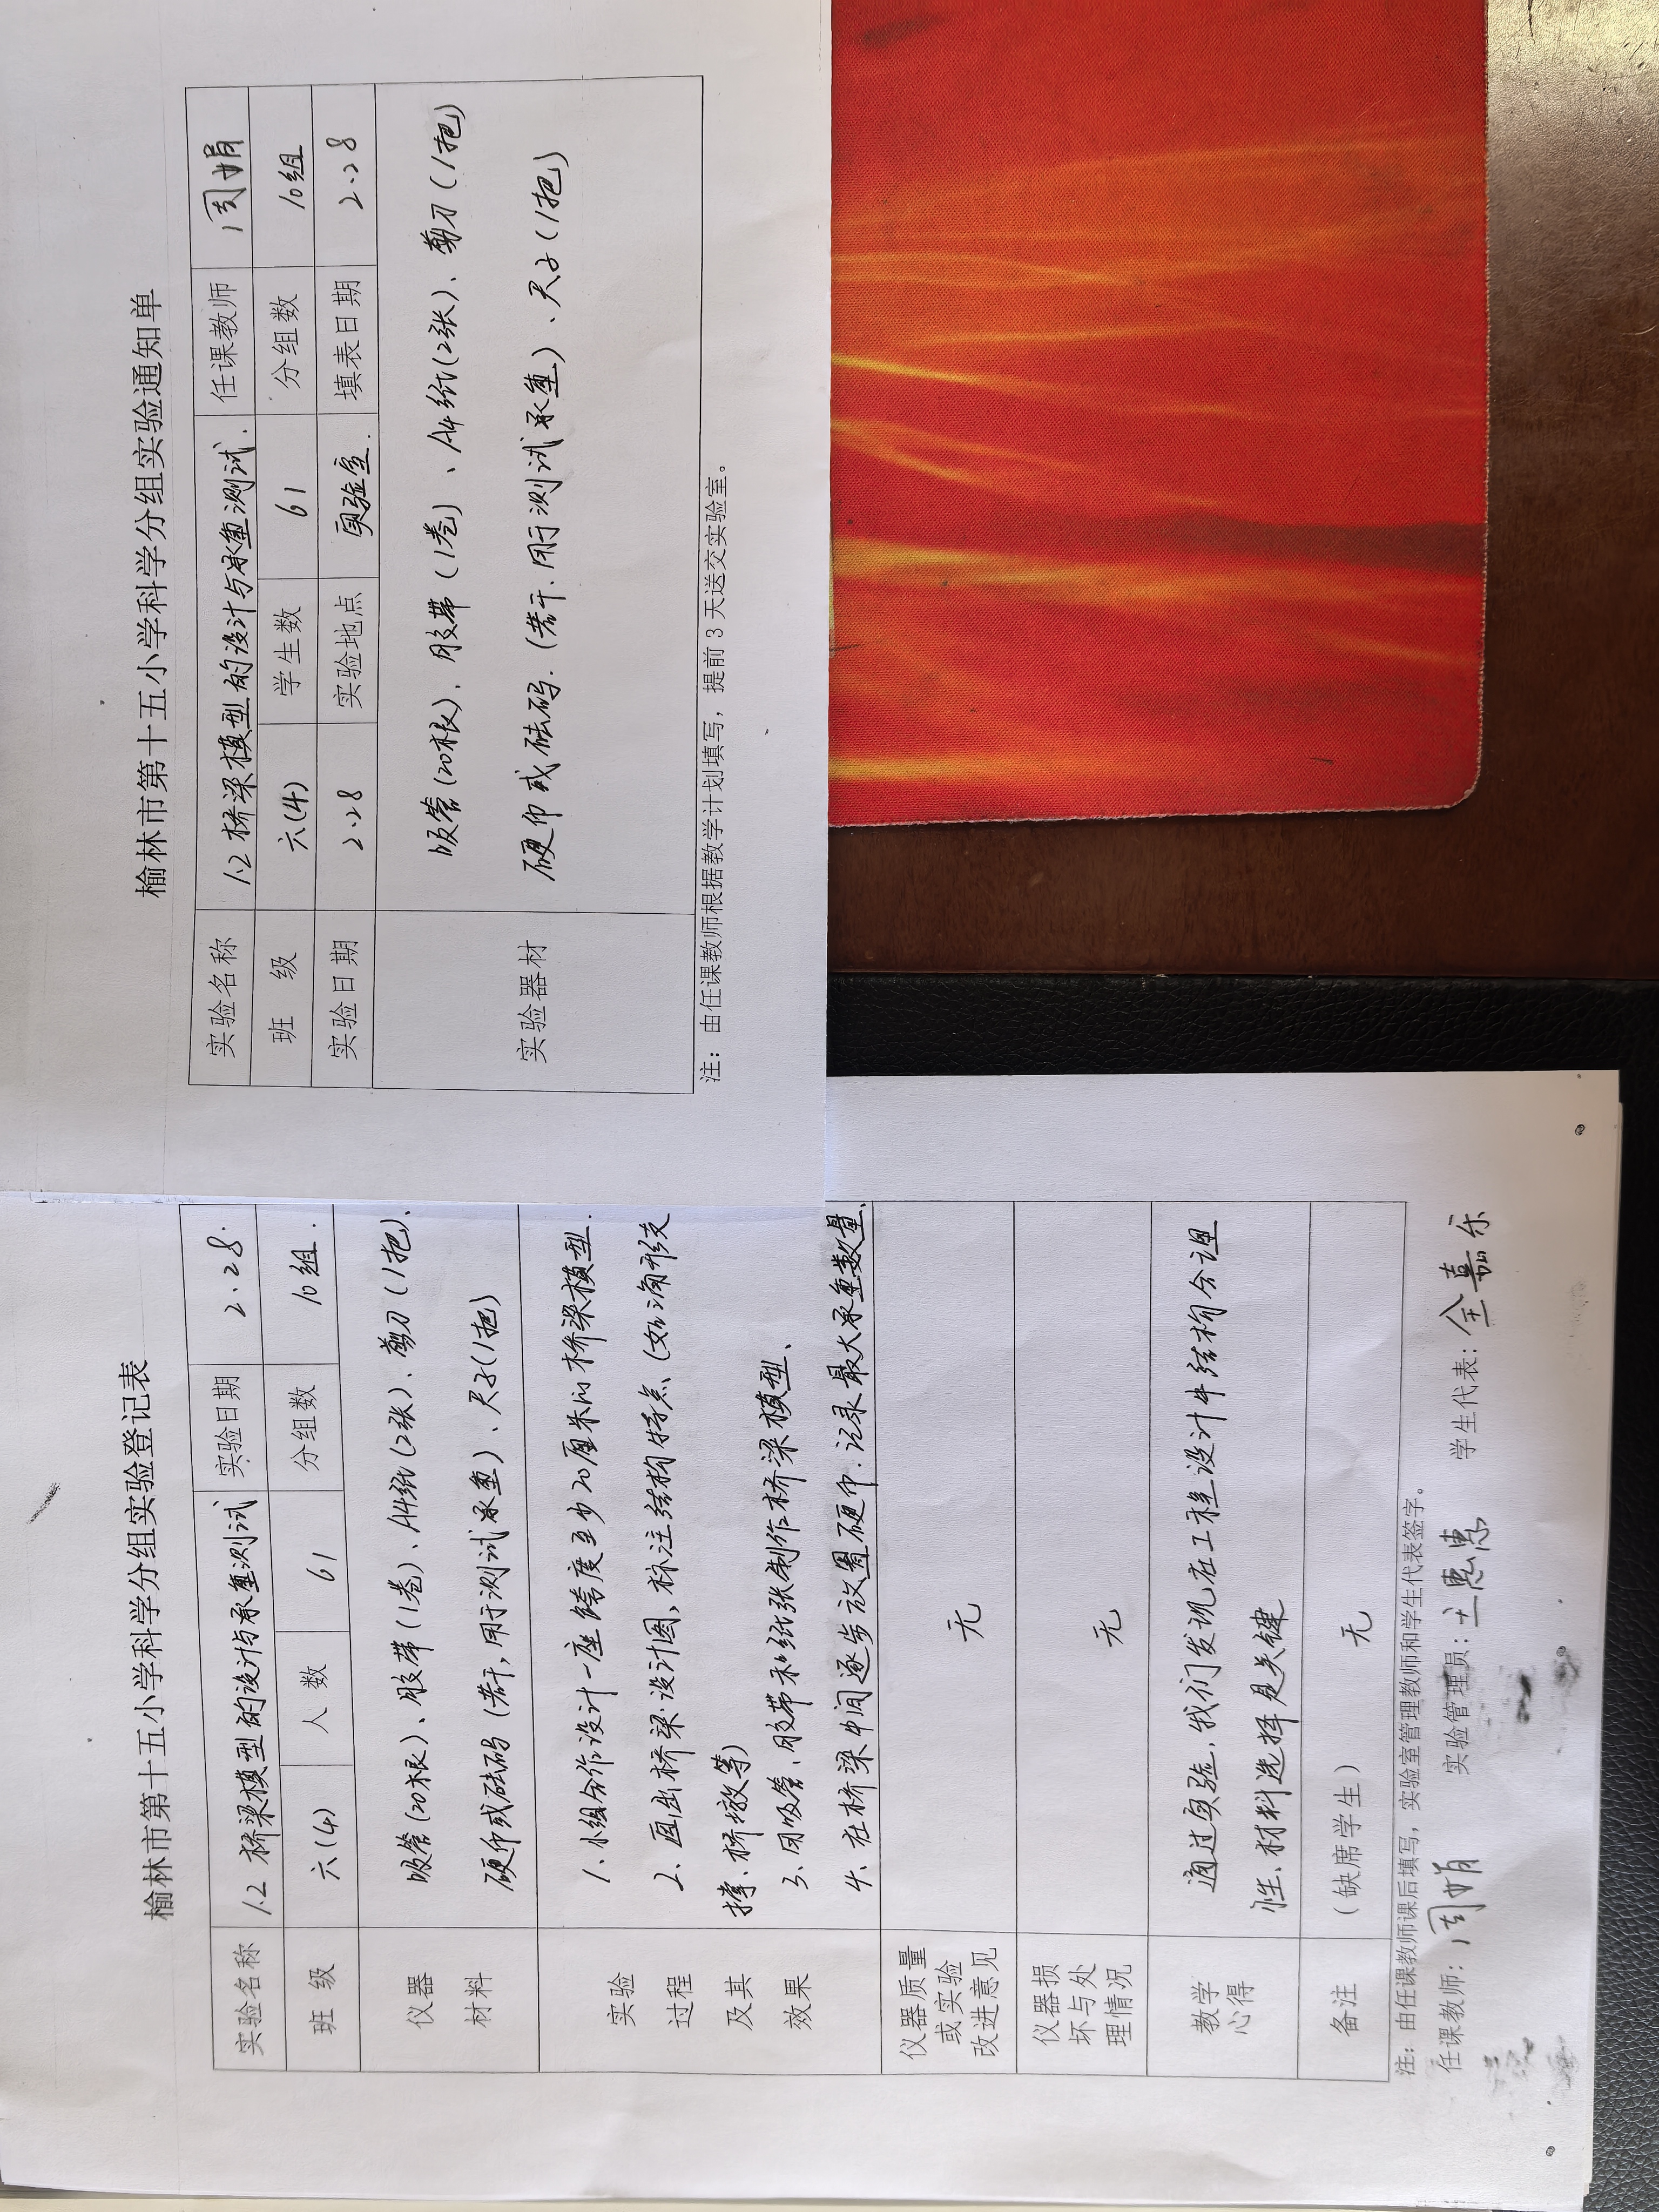 榆林市第十五小学科学分组实验通知单
实验名称 1.2 桥梁模型的设计与承重测试. 任课教师 周娟
班 级 六(4) 学生数 61 分组数 10组
实验日期 2.28 实验地点 实验室. 填表日期 2.28
实验器材
吸管(20根)、胶带(1卷)、A4纸(2张)、剪刀(1把)
硬币或砝码.(若干.用于测试承重)、尺子(1把)
注：由任课教师根据教学计划填写，提前 3 天送交实验室。
榆林市第十五小学科学分组实验登记表
实验名称 1.2 桥梁模型的设计与承重测试 实验日期 2.28.
班 级 六(4) 人 数 61 分组数 10组.
仪器
材料
吸管(20根)、胶带(1卷)、A4纸(2张)、剪刀(1把)、
硬币或砝码(若干,用于测试承重)、尺子(1把)
实验
过程
及其
效果
1、小组分作设计一座跨度至少20厘米的桥梁模型.
2、画出桥梁设计图,标注结构特点、(如三角形支
撑.桥墩等)
3、用吸管、胶带和纸张制作桥梁模型、
4、在桥梁中间逐步放置硬币.记录最大承重数量、
仪器质量
或实验
改进意见
无
仪器损
坏与处
理情况
无
教学
心得
通过实验,我们发现在工程设计中结构合理
性、材料选择是关键
备注 （缺席学生） 无
注：由任课教师课后填写，实验室管理教师和学生代表签字。
任课教师：周娟 实验管理员：王惠惠 学生代表：全嘉乐